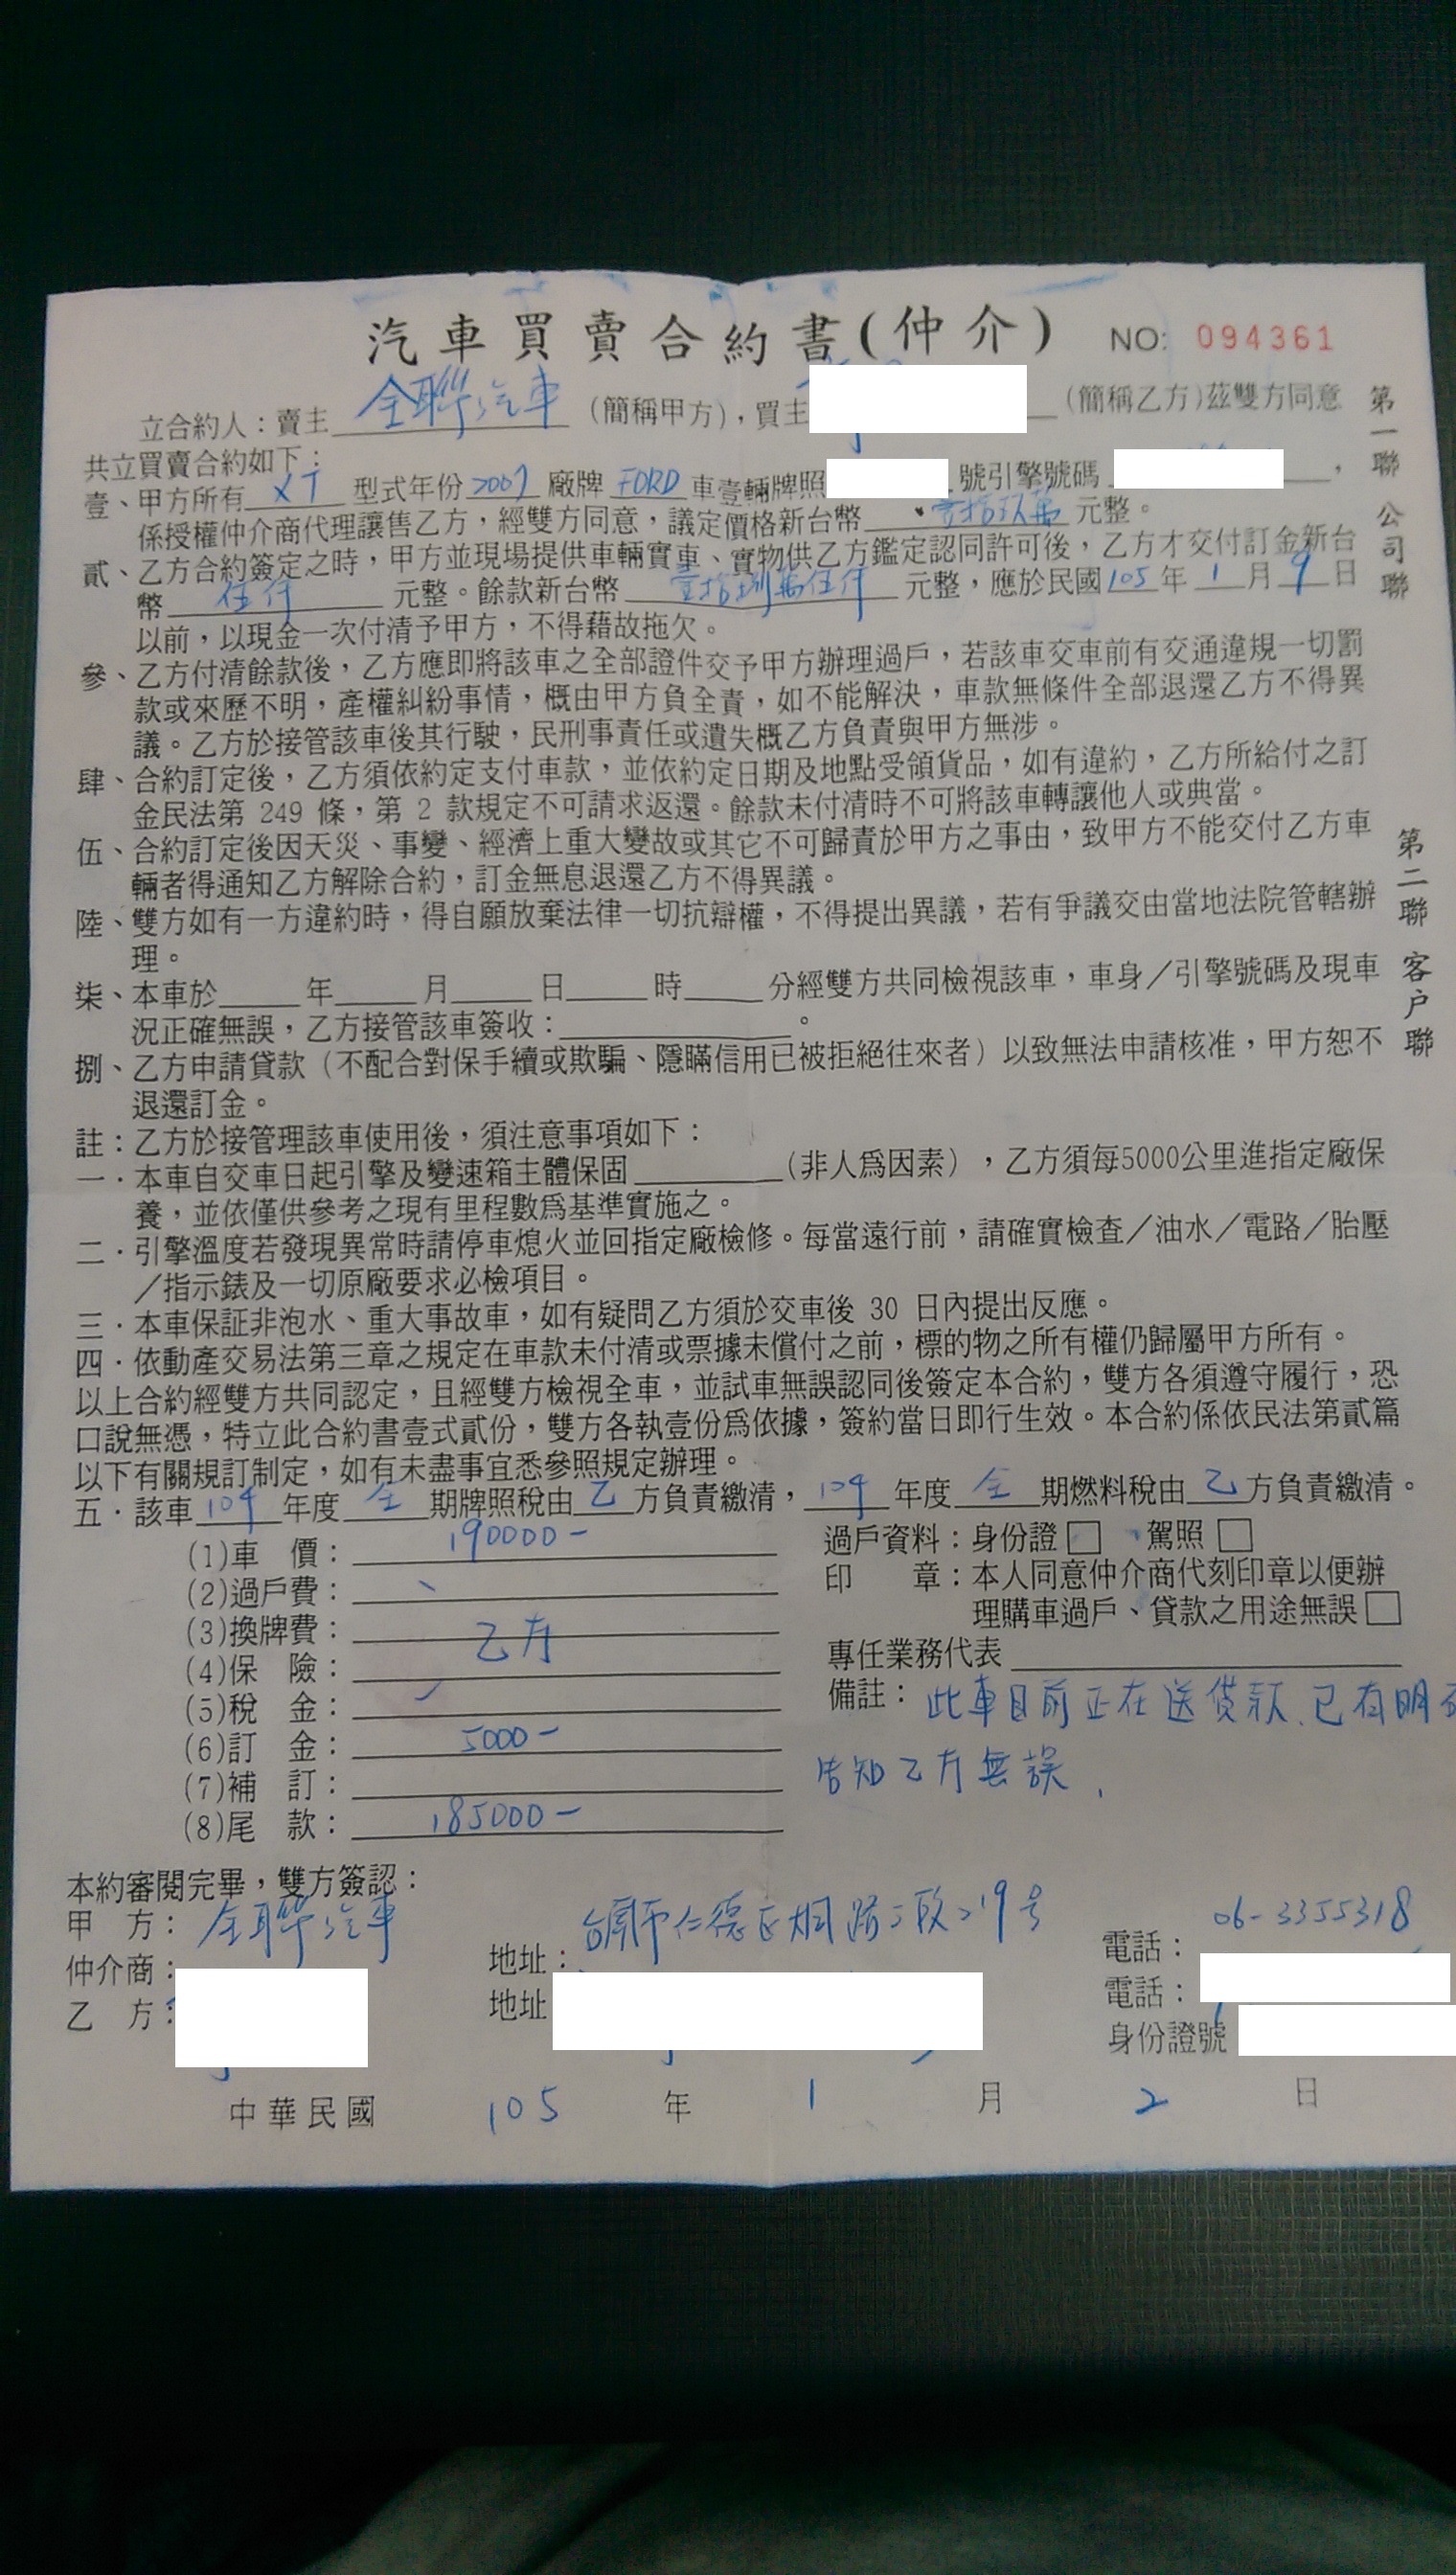 汽車買賣合約書(仲介) NO: 094361
立合約人：賣主 全聯汽車 (簡稱甲方)，買主 (簡稱乙方)茲雙方同意
共立買賣合約如下：
壹、甲方所有 XT 型式年份 2007 廠牌 FORD 車壹輛牌照 號引擎號碼 ，
係授權仲介商代理讓售乙方，經雙方同意，議定價格新台幣 壹拾玖萬 元整。
貳、乙方合約簽定之時，甲方並現場提供車輛實車、實物供乙方鑑定認同許可後，乙方才交付訂金新台
幣 伍仟 元整。餘款新台幣 壹拾捌萬伍仟 元整，應於民國 105 年 1 月 9 日
以前，以現金一次付清予甲方，不得藉故拖欠。
參、乙方付清餘款後，乙方應即將該車之全部證件交予甲方辦理過戶，若該車交車前有交通違規一切罰
款或來歷不明，產權糾紛事情，概由甲方負全責，如不能解決，車款無條件全部退還乙方不得異
議。乙方於接管該車後其行駛，民刑事責任或遺失概乙方負責與甲方無涉。
肆、合約訂定後，乙方須依約定支付車款，並依約定日期及地點受領貨品，如有違約，乙方所給付之訂
金民法第 249 條，第 2 款規定不可請求返還。餘款未付清時不可將該車轉讓他人或典當。
伍、合約訂定後因天災、事變、經濟上重大變故或其它不可歸責於甲方之事由，致甲方不能交付乙方車
輛者得通知乙方解除合約，訂金無息退還乙方不得異議。
陸、雙方如有一方違約時，得自願放棄法律一切抗辯權，不得提出異議，若有爭議交由當地法院管轄辦
理。
柒、本車於 年 月 日 時 分經雙方共同檢視該車，車身／引擎號碼及現車
況正確無誤，乙方接管該車簽收： 。
捌、乙方申請貸款（不配合對保手續或欺騙、隱瞞信用已被拒絕往來者）以致無法申請核准，甲方恕不
退還訂金。
註：乙方於接管理該車使用後，須注意事項如下：
一．本車自交車日起引擎及變速箱主體保固 （非人為因素），乙方須每5000公里進指定廠保
養，並依僅供參考之現有里程數為基準實施之。
二．引擎溫度若發現異常時請停車熄火並回指定廠檢修。每當遠行前，請確實檢查／油水／電路／胎壓
／指示錶及一切原廠要求必檢項目。
三．本車保証非泡水、重大事故車，如有疑問乙方須於交車後 30 日內提出反應。
四．依動產交易法第三章之規定在車款未付清或票據未償付之前，標的物之所有權仍歸屬甲方所有。
以上合約經雙方共同認定，且經雙方檢視全車，並試車無誤認同後簽定本合約，雙方各須遵守履行，恐
口說無憑，特立此合約書壹式貳份，雙方各執壹份為依據，簽約當日即行生效。本合約係依民法第貳篇
以下有關規訂制定，如有未盡事宜悉參照規定辦理。
五．該車 104 年度 全 期牌照稅由 乙 方負責繳清， 104 年度 全 期燃料稅由 乙 方負責繳清。
(1)車 價： 190000-
(2)過戶費：
(3)換牌費： 乙方
(4)保 險：
(5)稅 金：
(6)訂 金： 5000-
(7)補 訂：
(8)尾 款： 185000-
過戶資料：身份證□ 駕照□
印 章：本人同意仲介商代刻印章以便辦
理購車過戶、貸款之用途無誤□
專任業務代表
備註：此車目前正在送貸款、已有明確
告知乙方無誤.
本約審閱完畢，雙方簽認：
甲 方：全聯汽車 地址：台南市仁德區中正路二段219号 電話：06-3355318
仲介商： 地址 電話：
乙 方： 身份證號
中華民國 105 年 1 月 2 日
第一聯 公司聯
第二聯 客戶聯